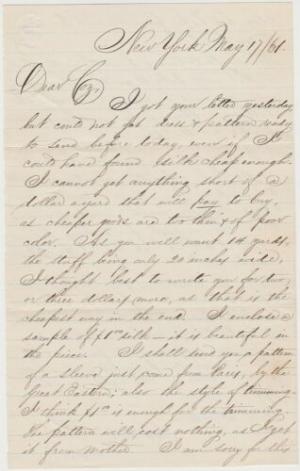 New York May 17/61.
Dear Cy.
I got your letter yesterday
but could not get dress & pattern ready
to send before today, even if I
could have found silk cheap enough.
I cannot get anything short of a
dollar a yard that will pay to buy,
as cheaper goods are too thin & of poor
color. As you will want 14 yards,
the stuff being only 20 inches wide,
I thought best to write you for two
or three dollars more, as that is the
cheapest way in the end. I enclose a
sample of $1.00 silk – it is beautiful in
the piece. I shall send you a pattern
of a sleeve just come from Paris, by the
Great Eastern; also the style of trimming.
I think $1.00 is enough for the trimming.
The pattern will cost nothing, as I get
it from Mother. I am sorry for this